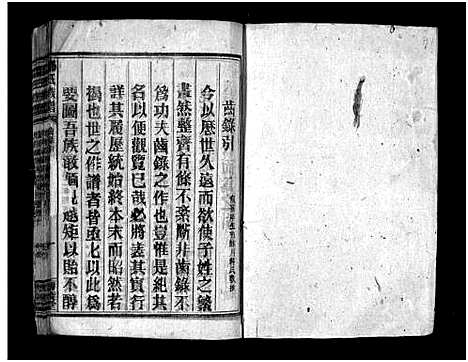 齒錄引
今以歷世久遠而欲使子姓之繁
畫然整齊有條不紊斷非齒錄不
為功夫齒錄之作也豈惟是紐其
名以便觀覽已哉必將表其實行
詳其履歷統始終本末而昭然若
揭也世之作譜者皆亟以此為
要圖吾族敢偭規越矩以貽不醇